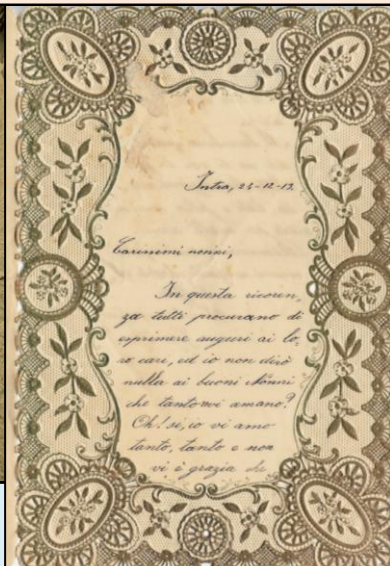 Intra, 24-12-13.
Carissimi nonni,
In questa ricoren,
za tutti procurano di
esprimere auguri ai lo,
ro cari, ed io non dirò
nulla ai buoni Nonni
che tanto mi amano?
Oh! sì, io vi amo
tanto, tanto e non
vi è grazia che